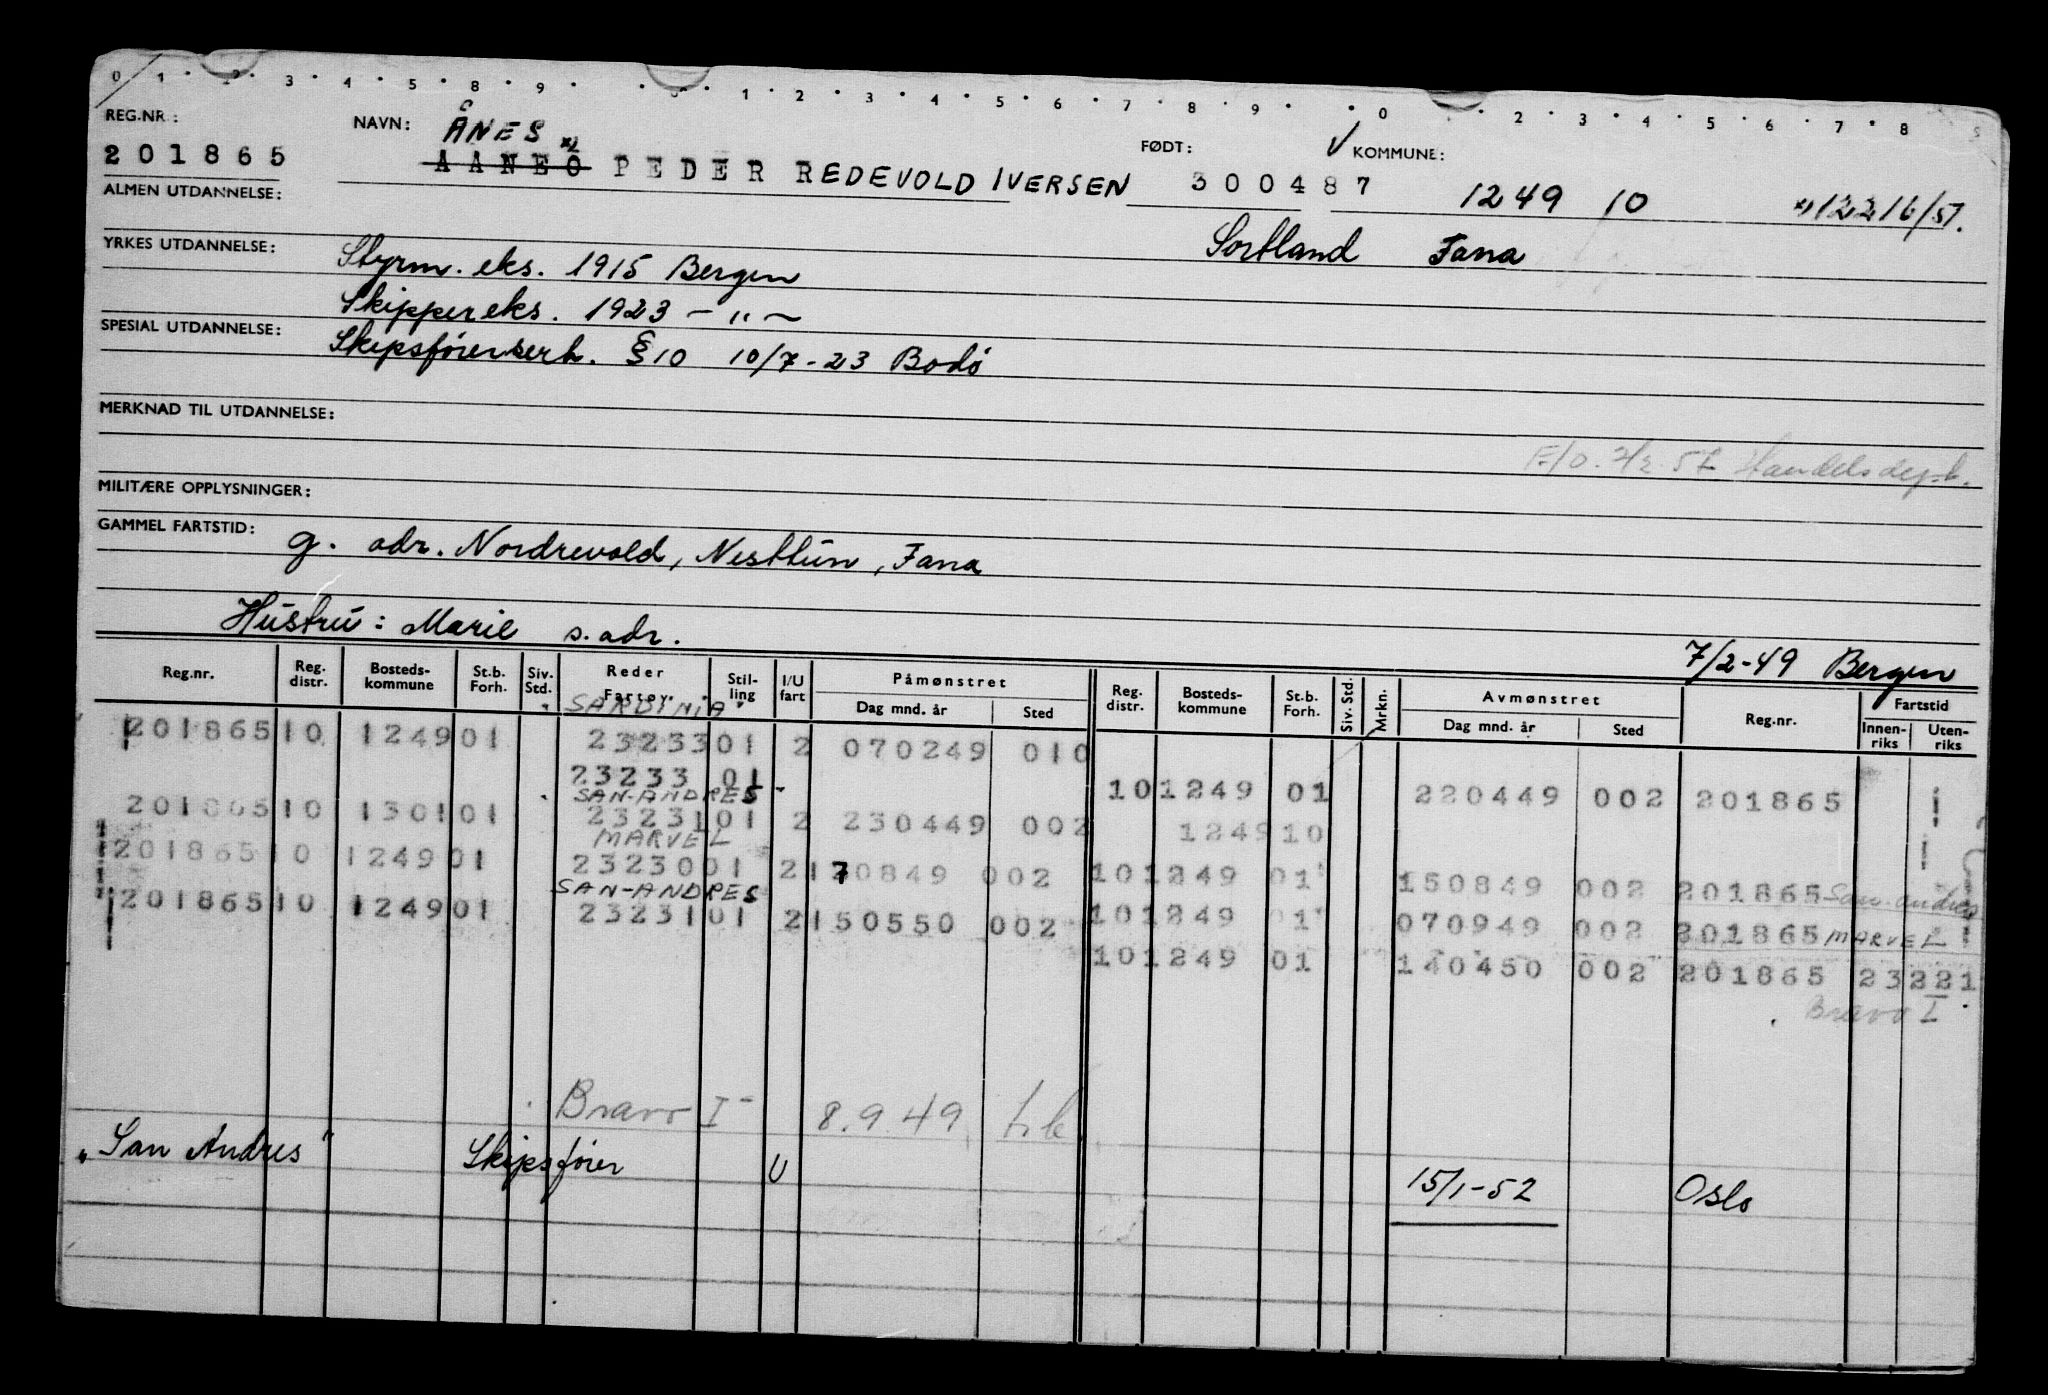 0 1 · 2 · 3 · 4 · 5 · 8 · 9 · · 1 · 2 · 3 · 4 · 5 · 6 · 7 · 8 · 9 · · 0 · 2 · 3 · 4 · 5 · 6 · 7 · 8 5
REG.NR.: NAVN: ÅNES FØDT: √ KOMMUNE:
201865 AANEO PEDER REDEVOLD IVERSEN 300487 1249 10 x) 12216/51.
ALMEN UTDANNELSE:
Sortland Fana
YRKES UTDANNELSE: Styrm. eks. 1915 Bergen
Skippereks. 1923 – " –
SPESIAL UTDANNELSE: Skipsførerserh. §10 10/7-23 Bodø
MERKNAD TIL UTDANNELSE:
Handelsdept.
MILITÆRE OPPLYSNINGER:
GAMMEL FARTSTID: g. adr. Nordrevold, Nesttun, Fana
Hustru: Marie s. adr.
7/2-49 Bergen
Reg.nr. Reg. distr. Bosteds-kommune St.b. Forh. Siv. Std. Reder Fartøy Stil-ling I/U fart Påmønstret Dag mnd. år Sted Reg. distr. Bosteds-kommune St.b. Forh. Siv. Std. Mrkn. Avmønstret Dag mnd. år Sted Reg.nr. Fartstid Innen-riks Uten-riks
"SARDINIA"
201865 10 1249 01 23233 01 2 070249 010
23233 01 10 1249 01 220449 002 201865
SAN-ANDRES
201865 10 1301 01 23231 01 2 230449 002 1249 10
MARVEL
201865 10 1249 01 23230 01 2 170849 002 10 1249 01 150849 002 201865 San-andres
SAN-ANDRES
201865 10 1249 01 23231 01 2 150550 002 10 1249 01 070949 002 201865 MARVEL
10 1249 01 140450 002 201865 23221
Bravo I
Bravo I 8.9.49
"San Andres" Skipsfører U 15/1-52 Oslo